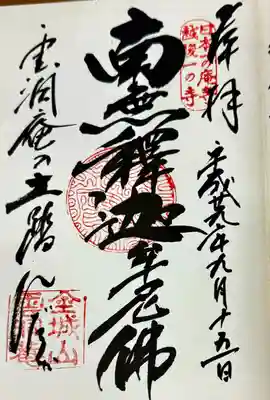 奉拝
平成廿九年九月十五日
日本一の庵寺
越後一の寺
南無釋迦牟尼佛
雲洞庵の土踏んだか
金城山